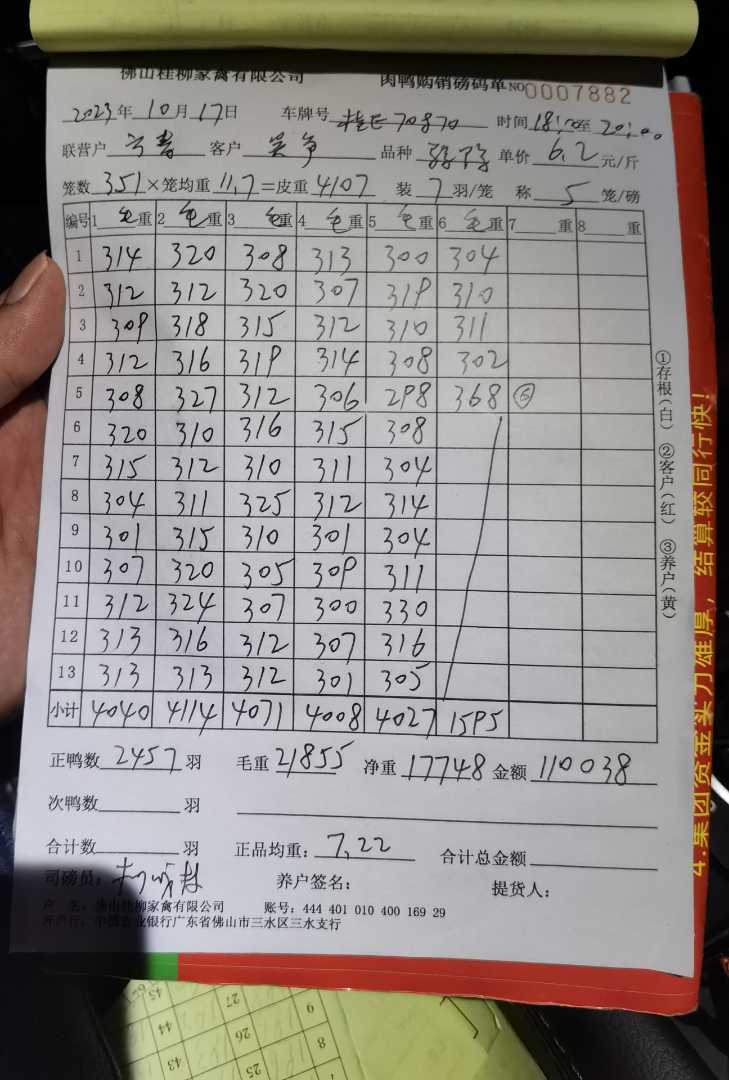 佛山桂柳家禽有限公司 肉鸭购销磅码单 NO0007882
2023年10月17日 车牌号 桂E70870 时间18:00至20:00
联营户 客户 吴 品种 单价 6.2 元/斤
笼数 351×笼均重 11.7=皮重 4107 装 7 羽/笼 称 5 笼/磅
编号 1 毛重 2 毛重 3 毛重 4 毛重 5 毛重 6 毛重 7 重 8 重
1 314 320 308 313 300 304
2 312 312 320 307 319 310
3 309 318 315 312 310 311
4 312 316 319 314 308 302
5 308 327 312 306 298 368 ⑥
6 320 310 316 315 308
7 315 312 310 311 304
8 304 311 325 312 314
9 301 315 310 301 304
10 307 320 305 309 311
11 312 324 307 300 330
12 313 316 312 307 316
13 313 313 312 301 305
小计 4040 4114 4071 4008 4027 1595
正鸭数 2457 羽 毛重 21855 净重 17748 金额 110038
次鸭数 羽
合计数 羽 正品均重: 7.22 合计总金额
司磅员: 养户签名: 提货人:
户 名: 佛山桂柳家禽有限公司 账号: 444 401 010 400 169 29
开户行: 中国农业银行广东省佛山市三水区三水支行
①存根(白) ②客户(红) ③养户(黄)
4.集团资金实力雄厚,结算较同行快!
45 27 9
44 26 8
43 25